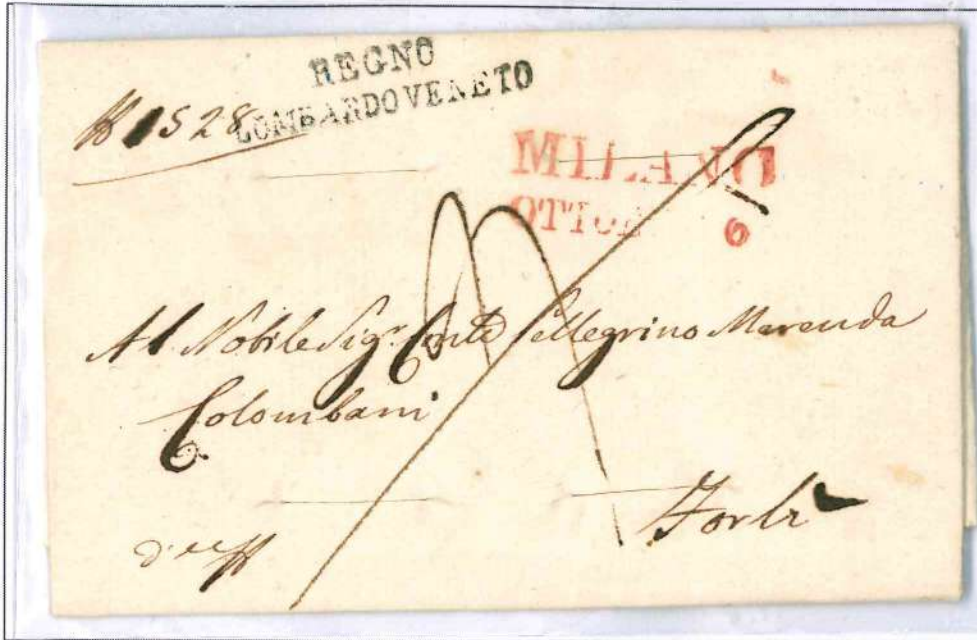 REGNO
LOMBARDO VENETO
1528
MILANO
6
Al Nobile Sigr. Conte Pellegrino Merenda
Colombani
Forlì